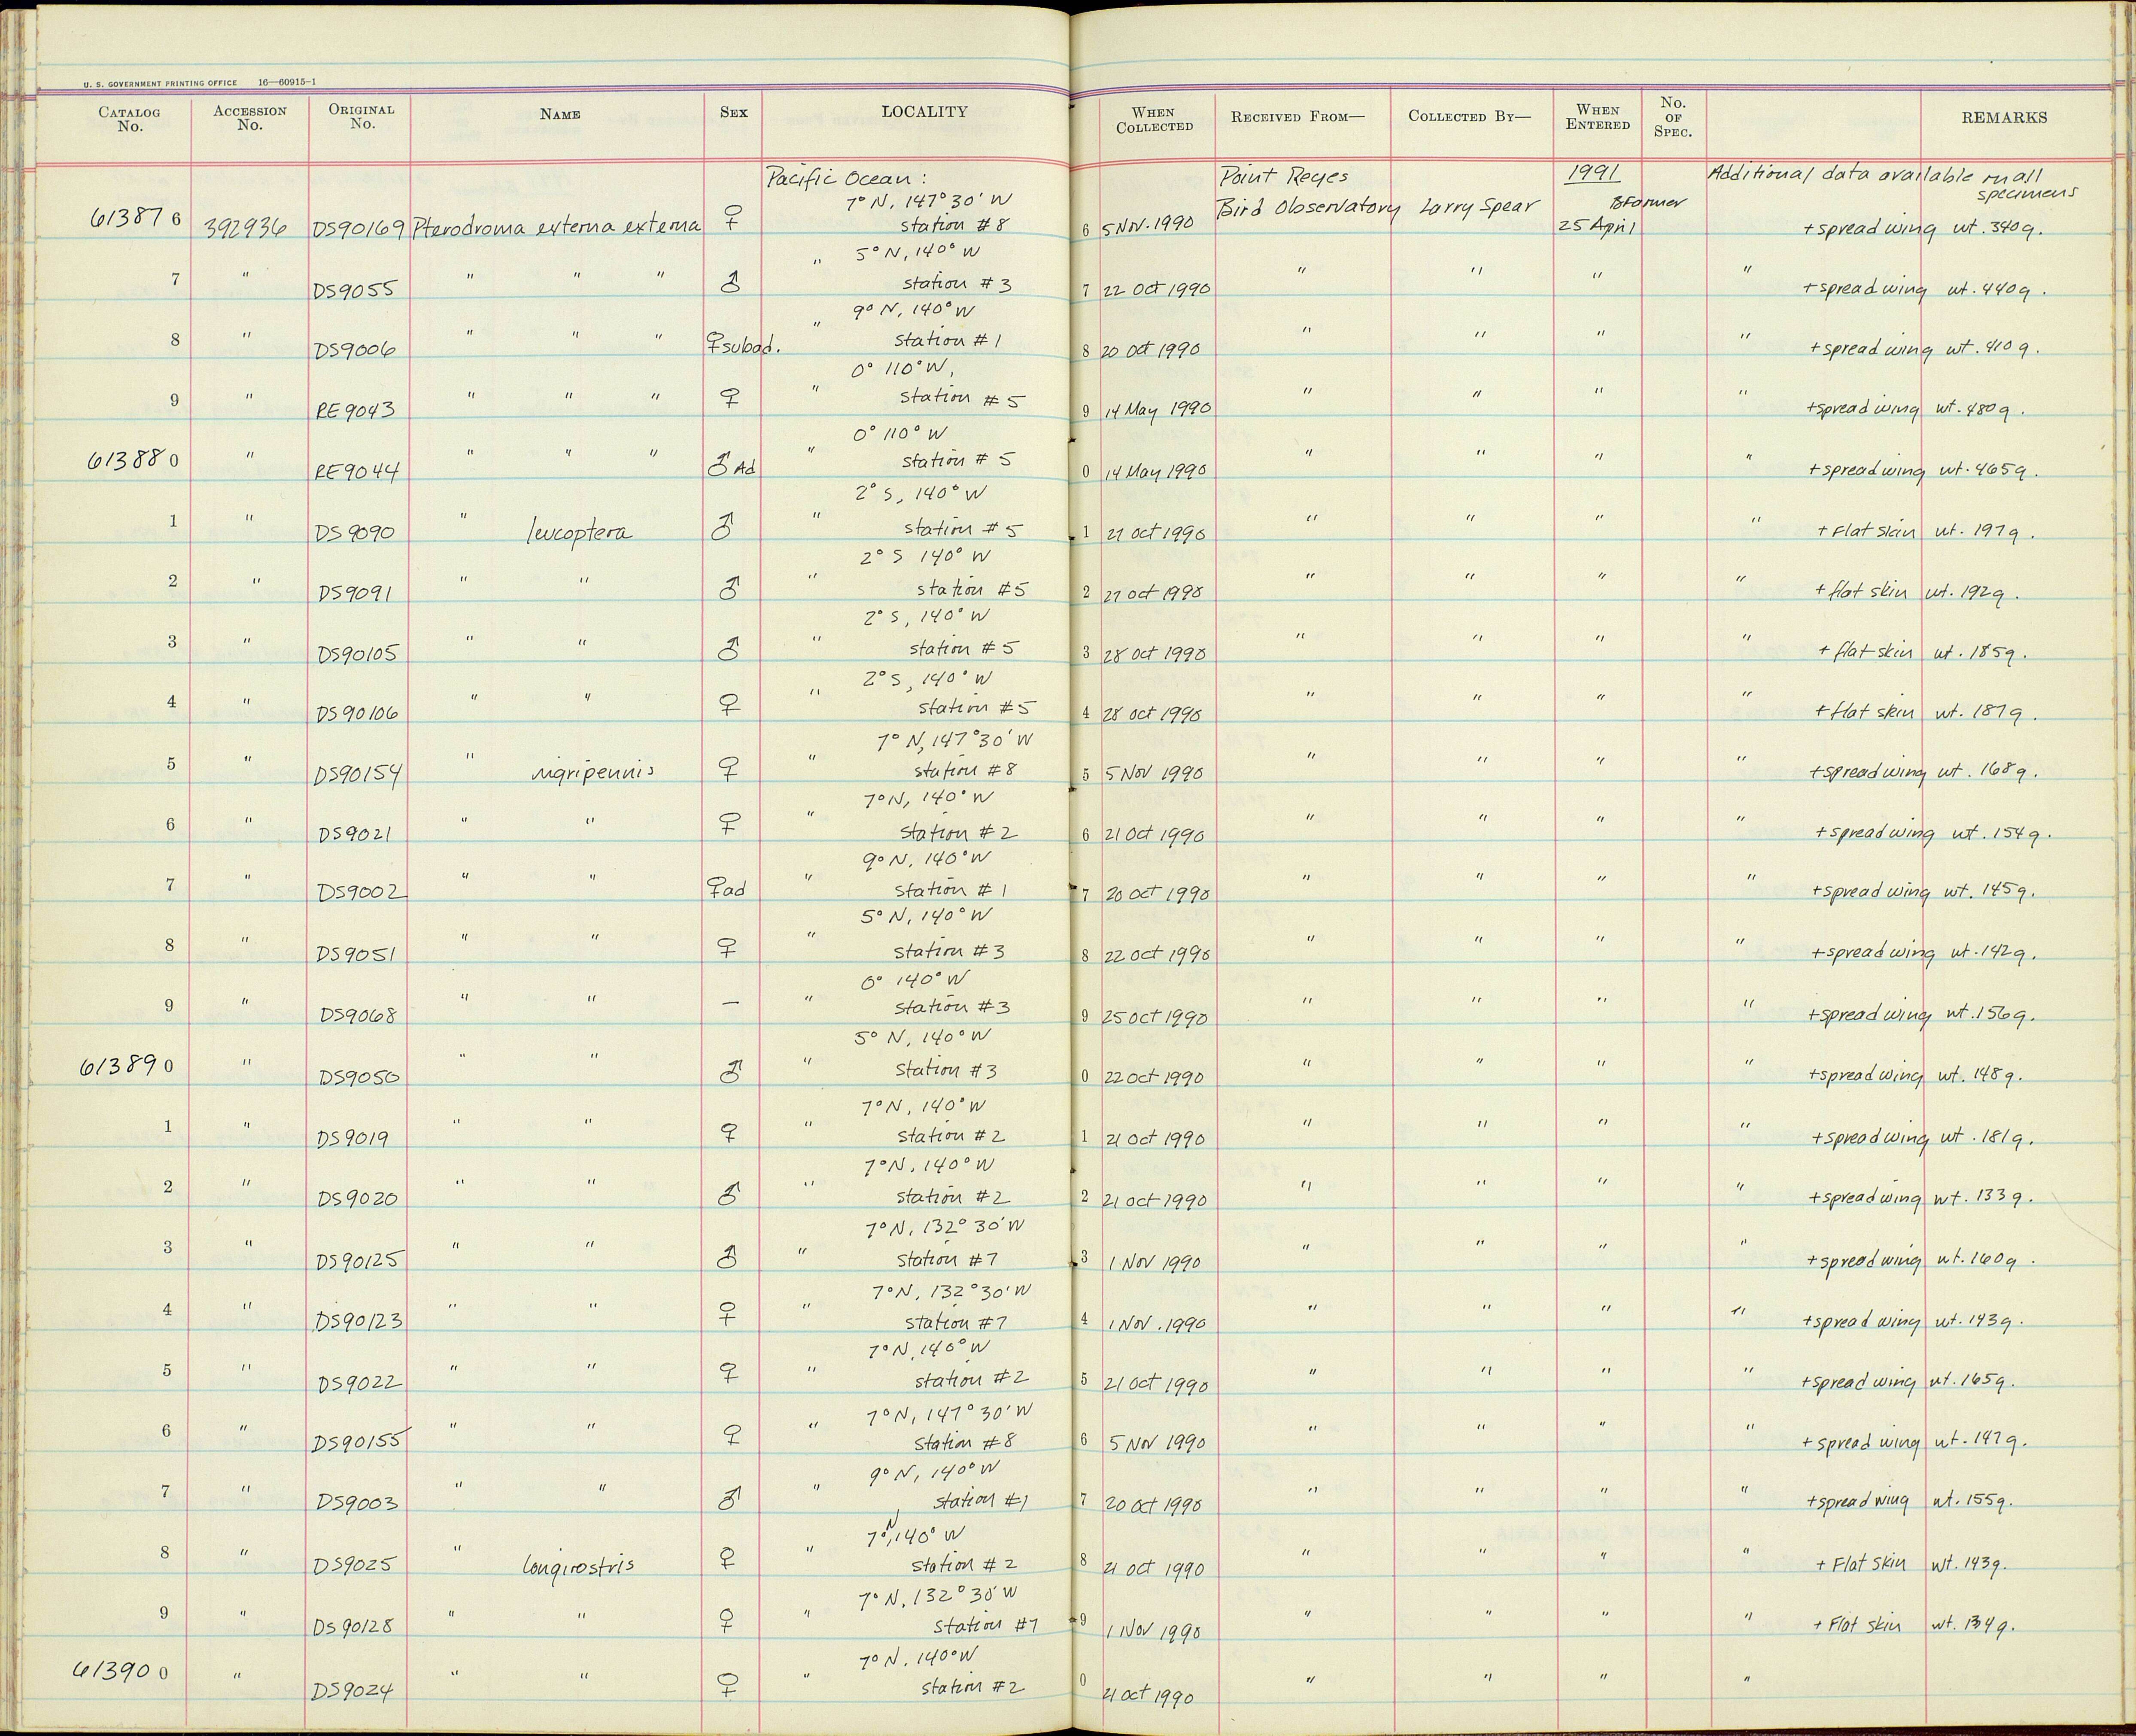 U. S. GOVERNMENT PRINTING OFFICE 16—60915-1
CATALOG No. ACCESSION No. ORIGINAL No. NAME SEX LOCALITY WHEN COLLECTED RECEIVED FROM— COLLECTED BY— WHEN ENTERED No. OF SPEC. REMARKS
Pacific Ocean: Point Reyes 1991 Additional data available on all specimens
7° N, 147°30' W Bird Observatory Larry Spear
613876 392936 DS90169 Pterodroma externa externa ♀ station #8 6 5 Nov. 1990 25 April + spread wing wt. 340g.
" 5° N, 140° W
7 " DS9055 " " " ♂ station #3 7 22 Oct 1990 " " " " + spread wing wt. 440g.
" 9° N, 140° W
8 " DS9006 " " " ♀ subad. station #1 8 20 Oct 1990 " " " " + spread wing wt. 410g.
0° 110° W,
9 " RE9043 " " " ♀ " station #5 9 14 May 1990 " " " " + spread wing wt. 480g.
0° 110° W
613880 " RE9044 " " " ♂ Ad " station #5 0 14 May 1990 " " " " + spread wing wt. 465g.
2° S, 140° W
1 " DS9090 " leucoptera ♂ " station #5 1 27 Oct 1990 " " " " + Flat skin wt. 197g.
2° S 140° W
2 " DS9091 " " ♂ " station #5 2 27 Oct 1990 " " " " + flat skin wt. 192g.
2° S, 140° W
3 " DS90105 " " ♂ " station #5 3 28 Oct 1990 " " " " + flat skin wt. 185g.
2° S, 140° W
4 " DS90106 " " ♀ " station #5 4 28 Oct 1990 " " " " + flat skin wt. 187g.
7° N, 147°30' W
5 " DS90154 " nigripennis ♀ " station #8 5 5 Nov 1990 " " " " + spread wing wt. 168g.
7° N, 140° W
6 " DS9021 " " ♀ " station #2 6 21 Oct 1990 " " " " + spread wing wt. 154g.
9° N, 140° W
7 " DS9002 " " ♀ ad " station #1 7 20 Oct 1990 " " " " + spread wing wt. 145g.
5° N, 140° W
8 " DS9051 " " ♀ " station #3 8 22 Oct 1990 " " " " + spread wing wt. 142g.
0° 140° W
9 " DS9068 " " — " station #3 9 25 Oct 1990 " " " " + spread wing wt. 156g.
5° N, 140° W
613890 " DS9050 " " ♂ " station #3 0 22 Oct 1990 " " " " + spread wing wt. 148g.
7° N, 140° W
1 " DS9019 " " ♀ " station #2 1 21 Oct 1990 " " " " + spread wing wt. 181g.
7° N, 140° W
2 " DS9020 " " ♂ " station #2 2 21 Oct 1990 " " " " + spread wing wt. 133g.
7° N, 132° 30' W
3 " DS90125 " " ♂ " station #7 3 1 Nov 1990 " " " " + spread wing wt. 160g.
7° N, 132° 30' W
4 " DS90123 " " ♀ " station #7 4 1 Nov. 1990 " " " " + spread wing wt. 143g.
7° N, 140° W
5 " DS9022 " " ♀ " station #2 5 21 Oct 1990 " " " " + spread wing wt. 165g.
7° N, 147° 30' W
6 " DS90155 " " ♀ " station #8 6 5 Nov 1990 " " " " + spread wing wt. 147g.
9° N, 140° W
7 " DS9003 " " ♂ " station #1 7 20 Oct 1990 " " " " + spread wing wt. 155g.
7° N, 140° W
8 " DS9025 " longirostris ♀ " station #2 8 21 Oct 1990 " " " " + Flat skin wt. 143g.
7° N, 132° 30' W
9 " DS90128 " " ♀ " station #7 9 1 Nov 1990 " " " " + Flat skin wt. 134g.
7° N, 140° W
613900 " DS9024 " " ♀ " station #2 0 21 Oct 1990 " " " "